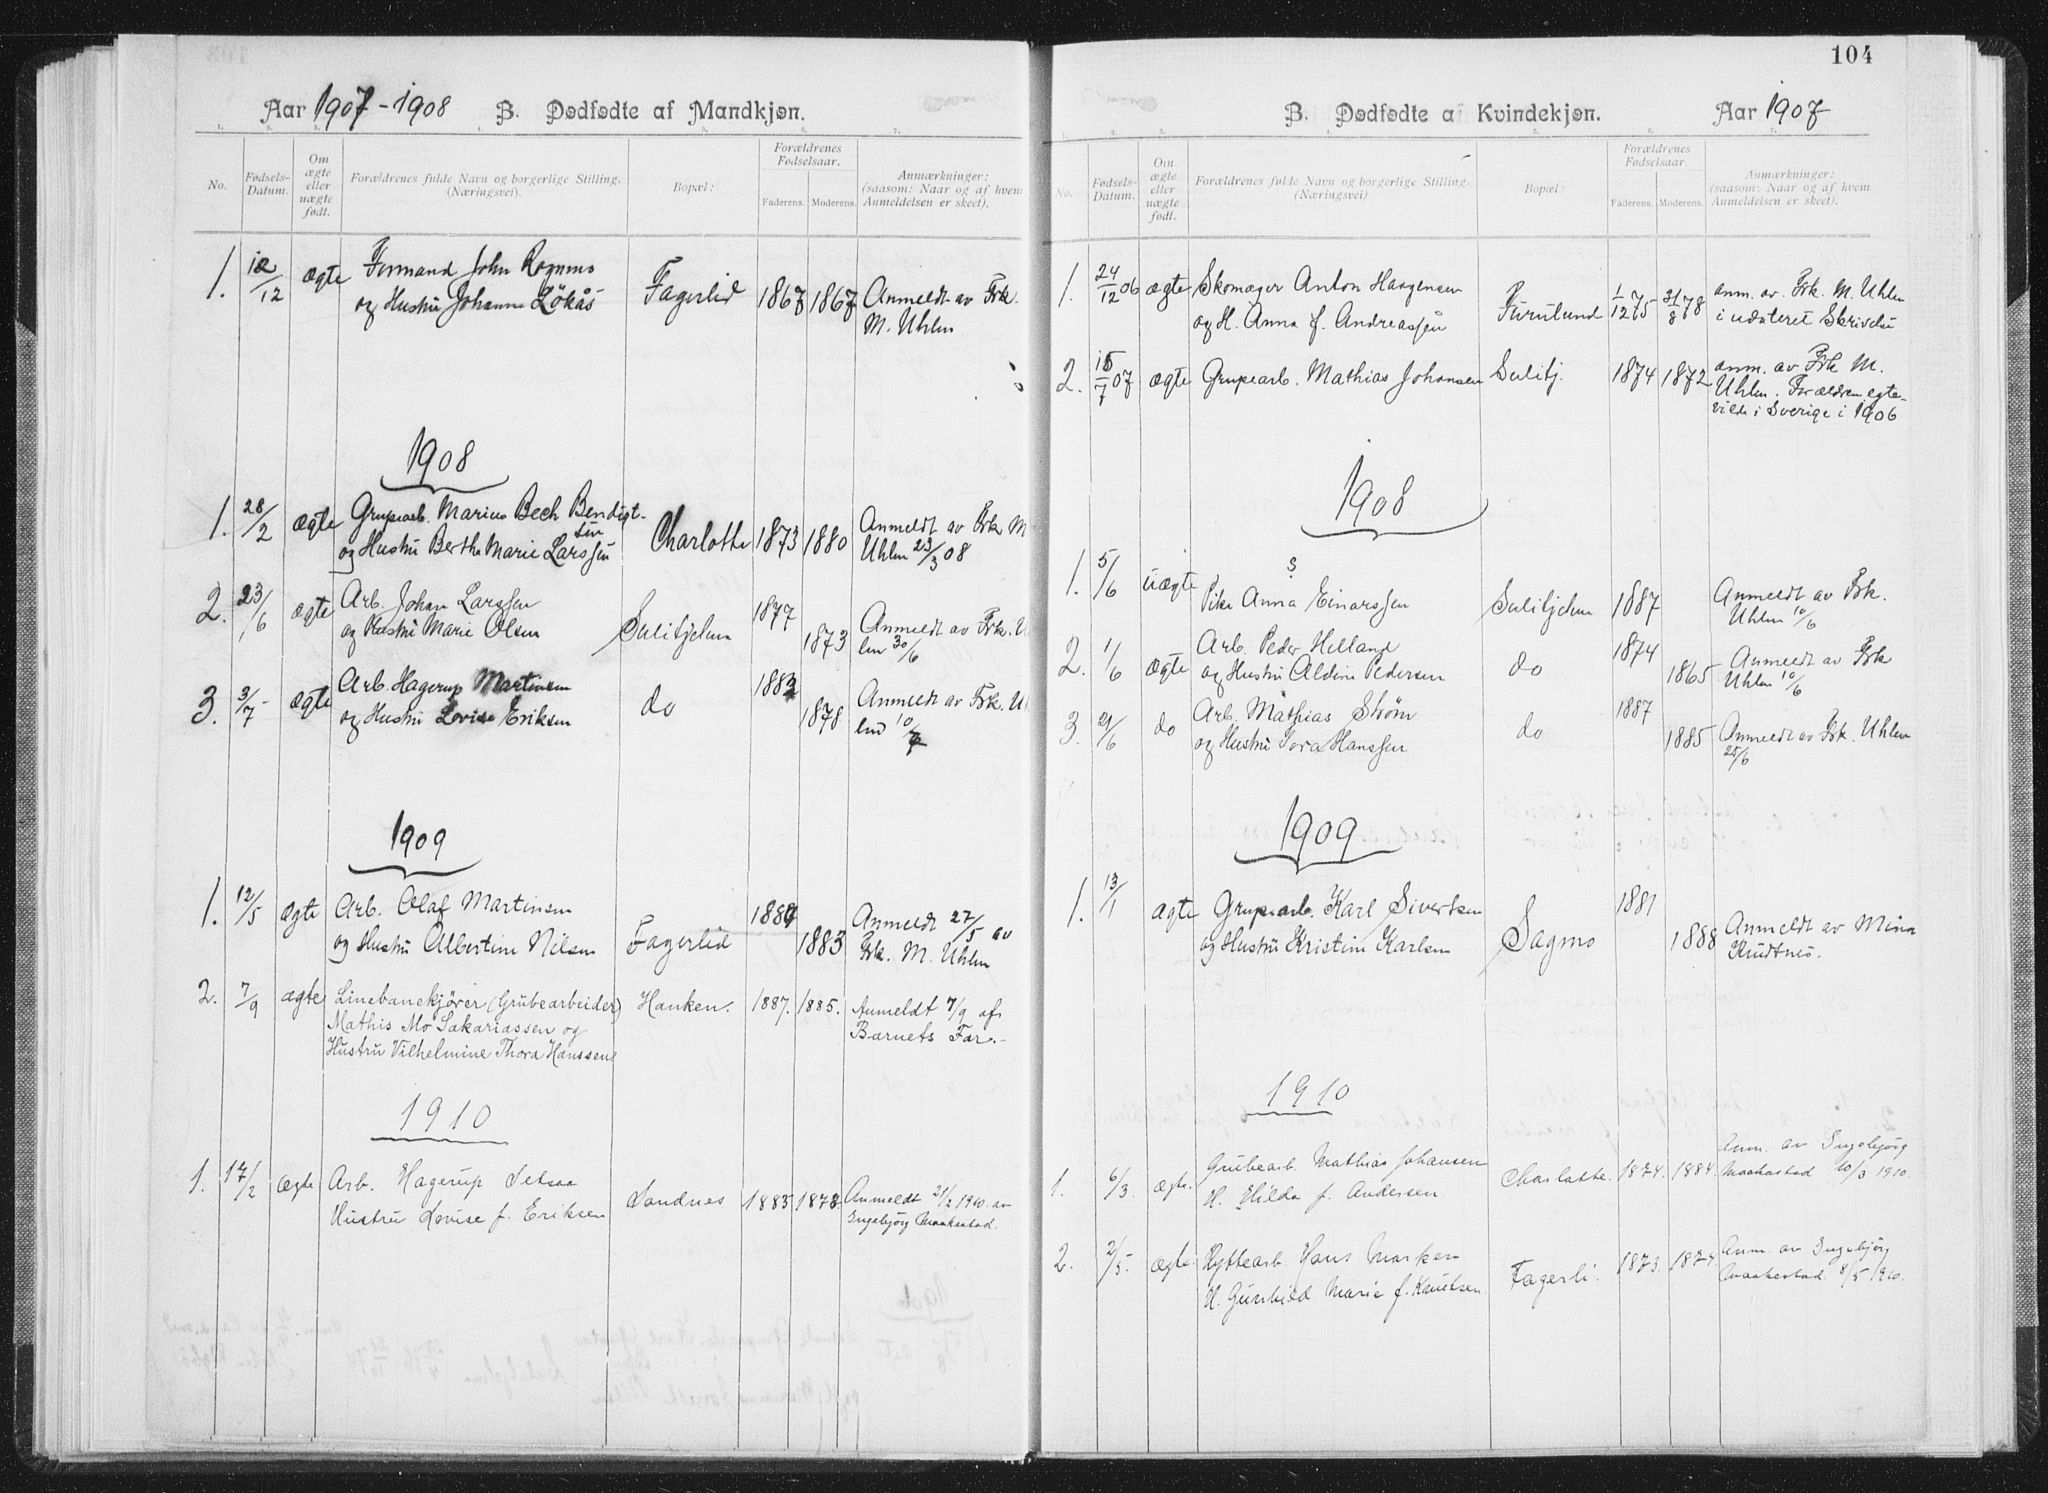 Aar 1907-1908 B. Dødfødte af Mandkjøn.
No.
Fødsels-
Datum.
Om
ægte
eller
uægte
født.
Forældrenes fulde Navn og borgerlige Stilling.
(Næringsvei).
Bopæl:
Forældrenes
Fødselsaar.
Faderens.
Moderens.
Anmærkninger:
(saasom: Naar og af hvem
Anmeldelsen er skeet).
1. 12/12 ægte Formand John Rognmo
og Hustru Johanne Løkås Fagerlid 1867 1867 Anmeldt av Frk.
M. Uhlen
1908
1. 28/2 ægte Grubearb. Marius Bech Bendigt-
sen
og Hustru Berthe Marie Larssen Charlotte 1873 1880 Anmeldt av Frk M
Uhlen 23/3 08
2. 23/6 ægte Arb. Johan Larssen
og Hustru Marie Olsen Sulitjelma 1877 1873 Anmeldt av Frk. U
len 30/6
3. 3/7 ægte Arb. Hagerup Martinsen
og Hustru Lovise Eriksen do 1882 1878 Anmeldt av Frk. U
len 10/7
1909
1. 12/5 ægte Arb. Olaf Martinsen
og Hustru Albertine Nilsen Fagerlid 1880 1883 Anmeldt 27/5 av
Frk. M. Uhlen
2. 7/9 ægte Linebanekjører (Grubearbeider)
Mathis Mo Sakariassen og
Hustru Vilhelmine Thora Hanssen Hanken. 1887. 1885. Anmeldt 7/9 af
Barnets Far.
1910
1. 17/2 ægte Arb. Hagerup Setsaa
Hustru Lovise f. Eriksen Sandnes 1883 1878 Anmeldt 21/2 1910 av
Ingebjörg Maakestad.
104
B. Dødfødte a Kvindekjøn. Aar 1907
No.
Fødsels-
Datum.
Om
ægte
eller
uægte
født.
Forældrenes fulde Navn og borgerlige Stilling.
(Næringsvei)
Bopæl:
Forældrenes
Fødselsaar.
Faderens.
Moderens.
Anmærkninger:
(saasom: Naar og af hvem
Anmeldelsen er skeet).
1. 24/12 06 ægte Skomager Anton Haagensen
og H. Anna f. Andreassen Furulund 1/12 75 31/8 78 anm. av. Frk. M. Uhlen
i udateret Skrivelse
2. 15/7 07 ægte Grubearb. Mathias Johansen Sulitj. 1874 1872 anm. av Frk M.
Uhlen. Forældrene egte-
vilde i Sverige i 1906
1908
1. 5/6 uægte ?
Pike Anna Einarssen Sulitjelma 1887 Anmeldt av Frk.
Uhlen 10/6
2. 1/6 ægte Arb. Peder Helland
og Hustru Aldine Pedersen do 1874 1865 Anmeldt av Frk
Uhlen 10/6
3. 21/6 do Arb. Mathias Strøm
og Hustru Tora Hanssen do 1887 1885 Anmeldt av Frk. Uhlen
25/6
1909
1. 13/1 ægte Grubearb. Karl Sivertsen
og Hustru Kristine Karlsen Sagmo 1881 1888 Anmeldt av Mina
Knudtnes.
1910
1. 6/3. ægte. Grubearb. Mathias Johansen
H. Hilda f. Andersen. Charlotte. 1874. 1884. Anm. av Ingebjörg
Maakestad 10/3 1910.
2. 2/5. ægte. Hyttearb. Hans Marken
H. Gunhild Marie f. Knutsen. Fagerli. 1873. 1874. Anm. av Ingebjörg
Maakestad. 8/5 1910.